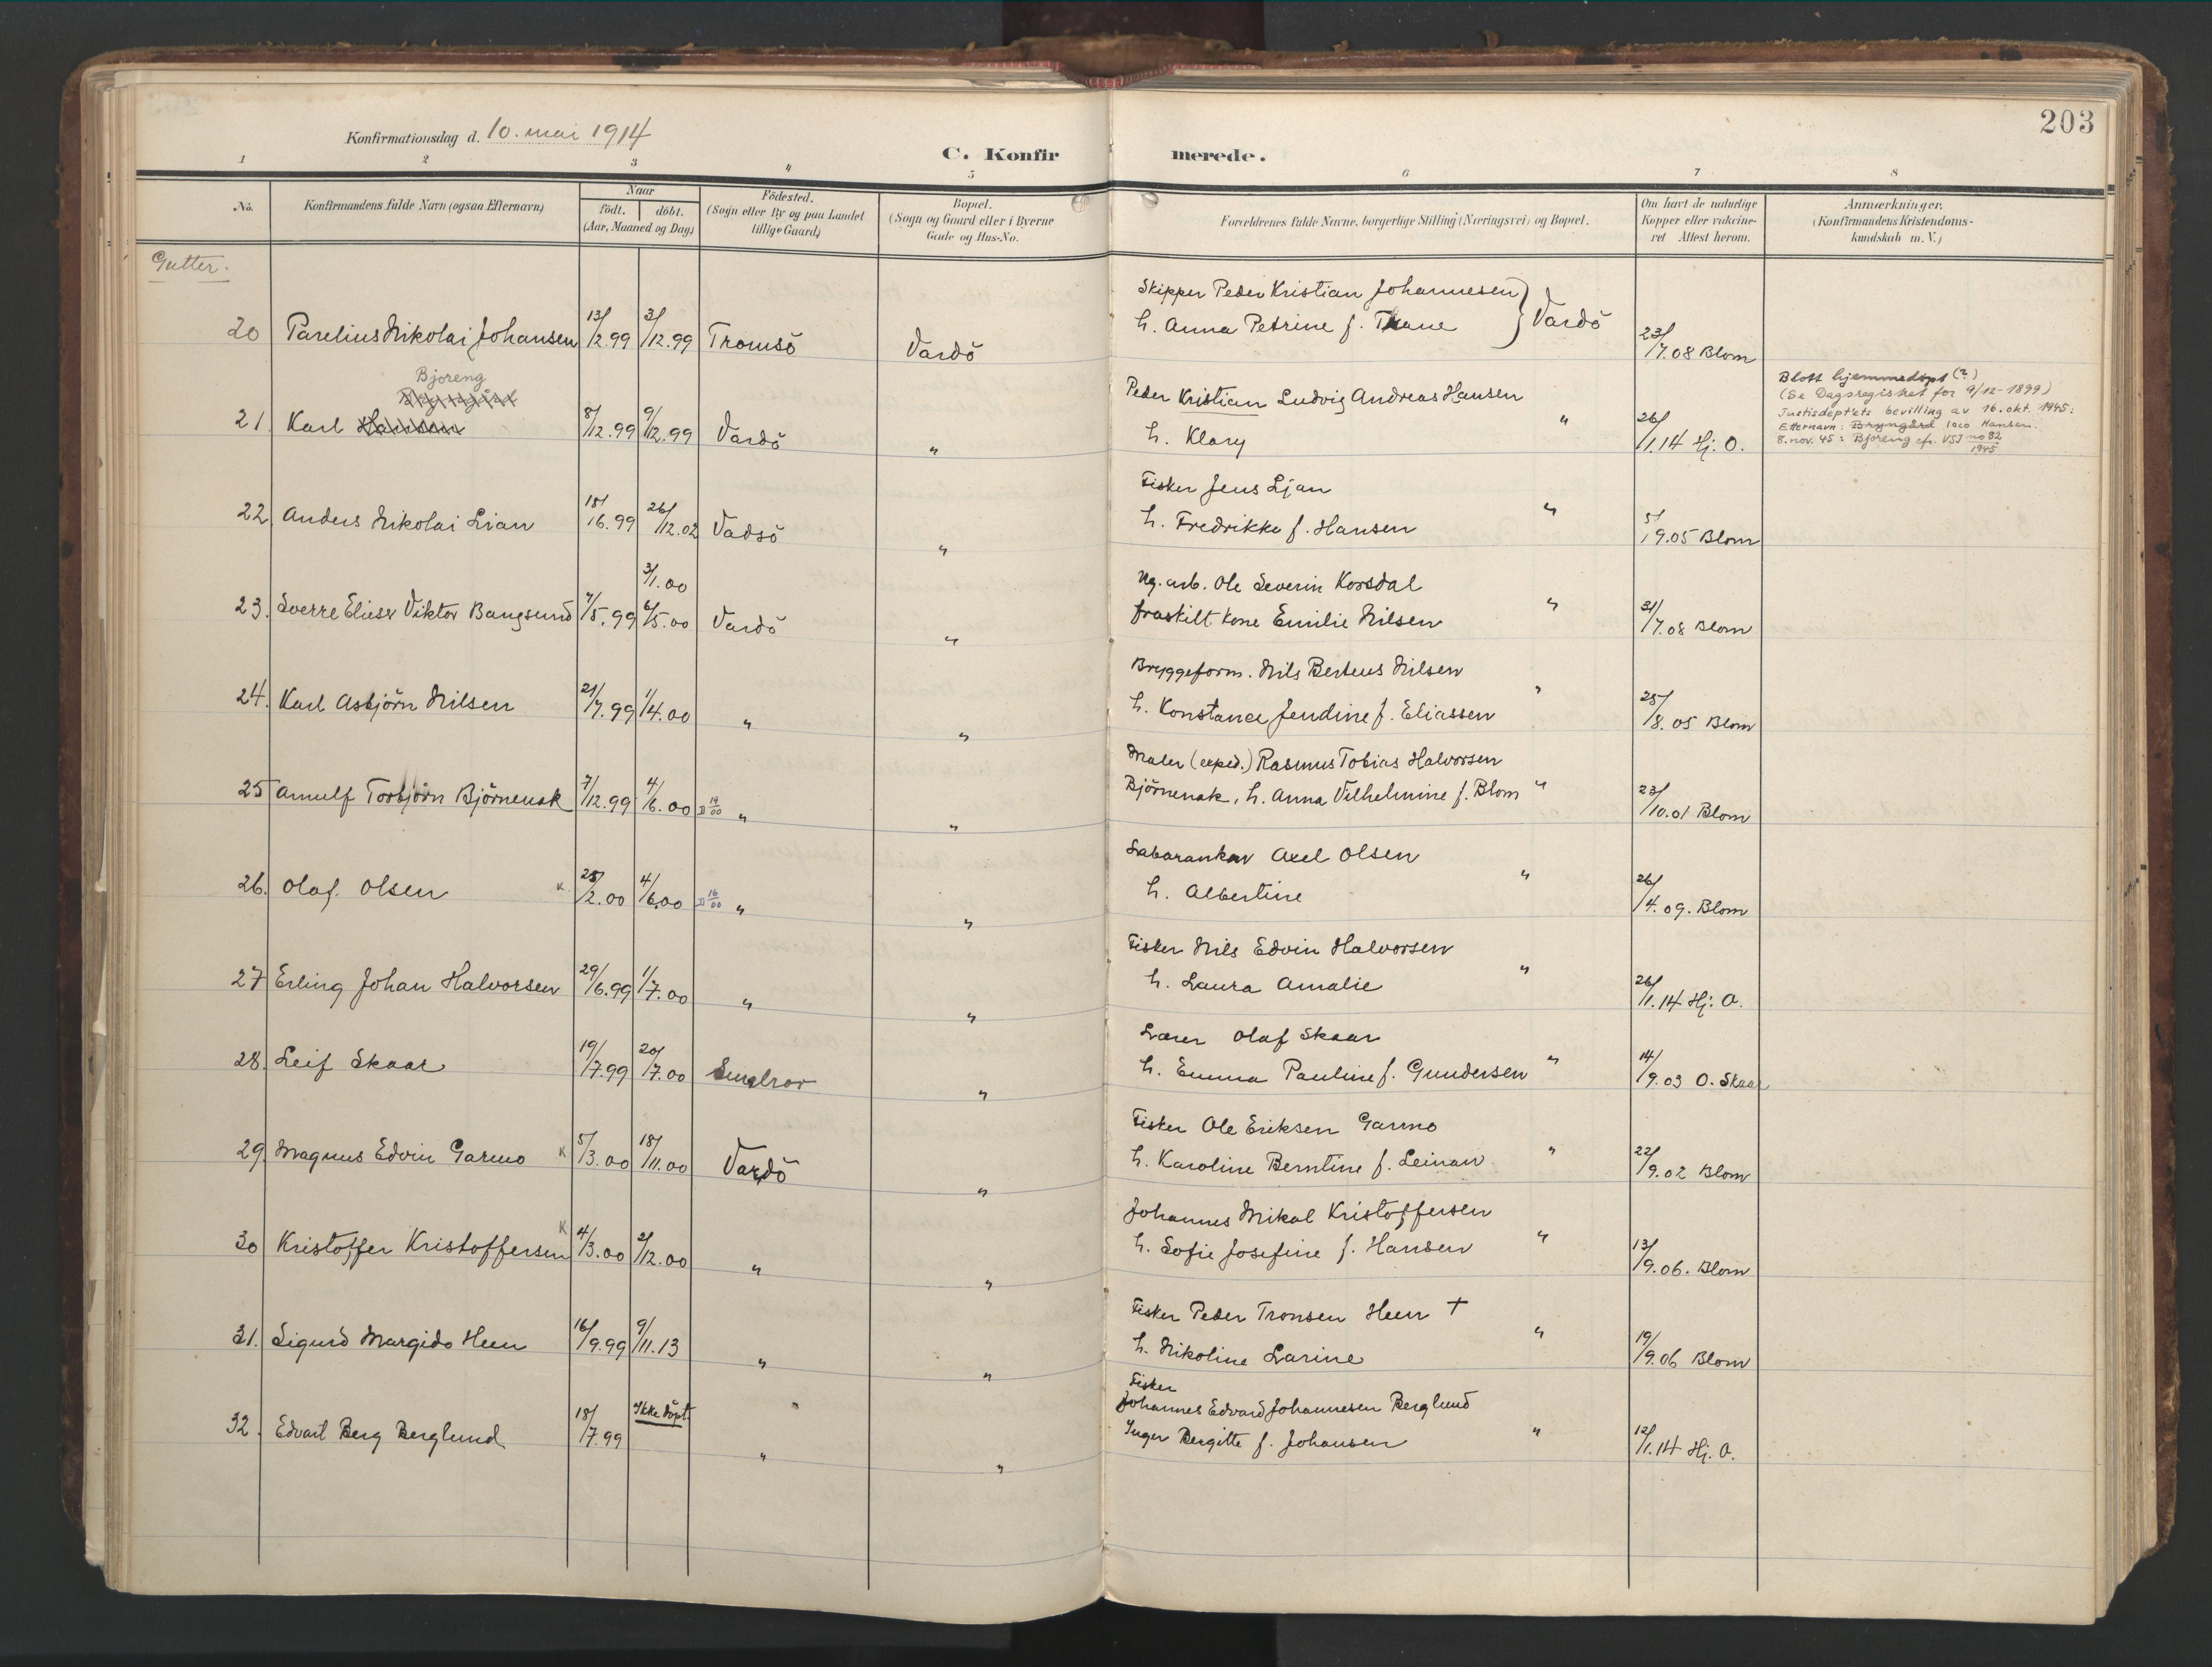 203
Konfirmationsdag d. 10. mai 1914
C. Konfirmerede.
1 2 3 4 5 6 7 8
No. Konfirmandens fulde Navn (ogsaa Efternavn) Naar födt. döbt. (Aar, Maaned og Dag) Födested. (Sogn eller By og paa Landet tillige Gaard) Bopæl. (Sogn og Gaard eller i Byerne Gade og Hus-No. Forældrenes fulde Navne, borgerlige Stilling (Næringsvei) og Bopæl. Om havt de naturlige Kopper eller vaccineret Attest herom. Anmærkninger. (Konfirmandens Kristendomskundskab m. V.)
Gutter.
Skipper Peder Kristian Johannesen
20 Parelius Nikolai Johansen 13/12.99 3/12.99 Tromsö Vardö h. Anna Petrine f. Thane } Vardö 23/7.08 Blom
Bjoreng
Peder Kristian Ludvig Andreas Hansen
21. Karl Hansen 8/12.99 9/12.99 Vardö " h. Klary " 26/1.14 Hj. O.
Blott hjemmedöpt (?)
(Se Dagsregistret for 9/12-1899)
Justisdept'ets bevilling av 16. okt. 1945:
Etternavn: Bryngård loco Hansen.
8. nov. 45: Bjoreng cfr. VSJ no 82
1945
Fisker Jens Ljan
22 Anders Nikolai Lian 18/16.99 26/12.02 Vadsö " h. Fredrikke f. Hansen " 5/9.05 Blom
3/1.00
Ug. arb. Ole Severin Korsdal
23. Sverre Elieser Viktor Bangsund 7/5.99 6/5.00 Vardö " fraskilt kone Emilie Nilsen " 31/7.08 Blom
Bryggeform. Nils Berteus Nilsen
24. Karl Asbjörn Nilsen 21/7.99 1/4.00 " " h. Konstance Jendine f. Eliassen " 25/8.05 Blom
Maler (exped.) Rasmus Tobias Halvorsen
25 Arnulf Torbjörn Björnenak 7/12.99 4/6.00 D 19/00 " " Björnenak, h. Anna Vilhelmine f. Blom " 23/10.01 Blom
Axel Olsen
26. Olaf Olsen K 25/2.00 4/6.00 D 16/00 " " h. Albertine " 26/4.09. Blom
Fisker Nils Edvin Halvorsen
27 Erling Johan Halvorsen 29/6.99 1/7.00 " " h. Laura Amalie " 26/1.14 Hj. O.
Lærer Olaf Skaar
28. Leif Skaar 19/7.99 20/7.00 Smelror " h. Emma Pauline f. Gundersen " 14/9.03 O. Skaar
Fisker Ole Eriksen Garmo
29. Magnus Edvin Garmo K 5/3.00 18/11.00 Vardö " h. Karoline Berntine f. Leinan " 22/9.02 Blom
Johannes Mikal Kristoffersen
30 Kristoffer Kristoffersen K 4/3.00 2/12.00 " " h. Sofie Josefine f. Hansen " 13/9.06. Blom
Fisker Peder Tronsen Heen †
31. Sigurd Margido Heen 16/9.99 9/11.13 " " h. Nikoline Larine " 19/9.06 Blom
Fisker
Johannes Edvard Johannesen Berglund
32. Edvart Berg Berglund 18/7.99 Ikke döpt. " " Inger Bergitte f. Johansen " 12/1.14 Hj. O.